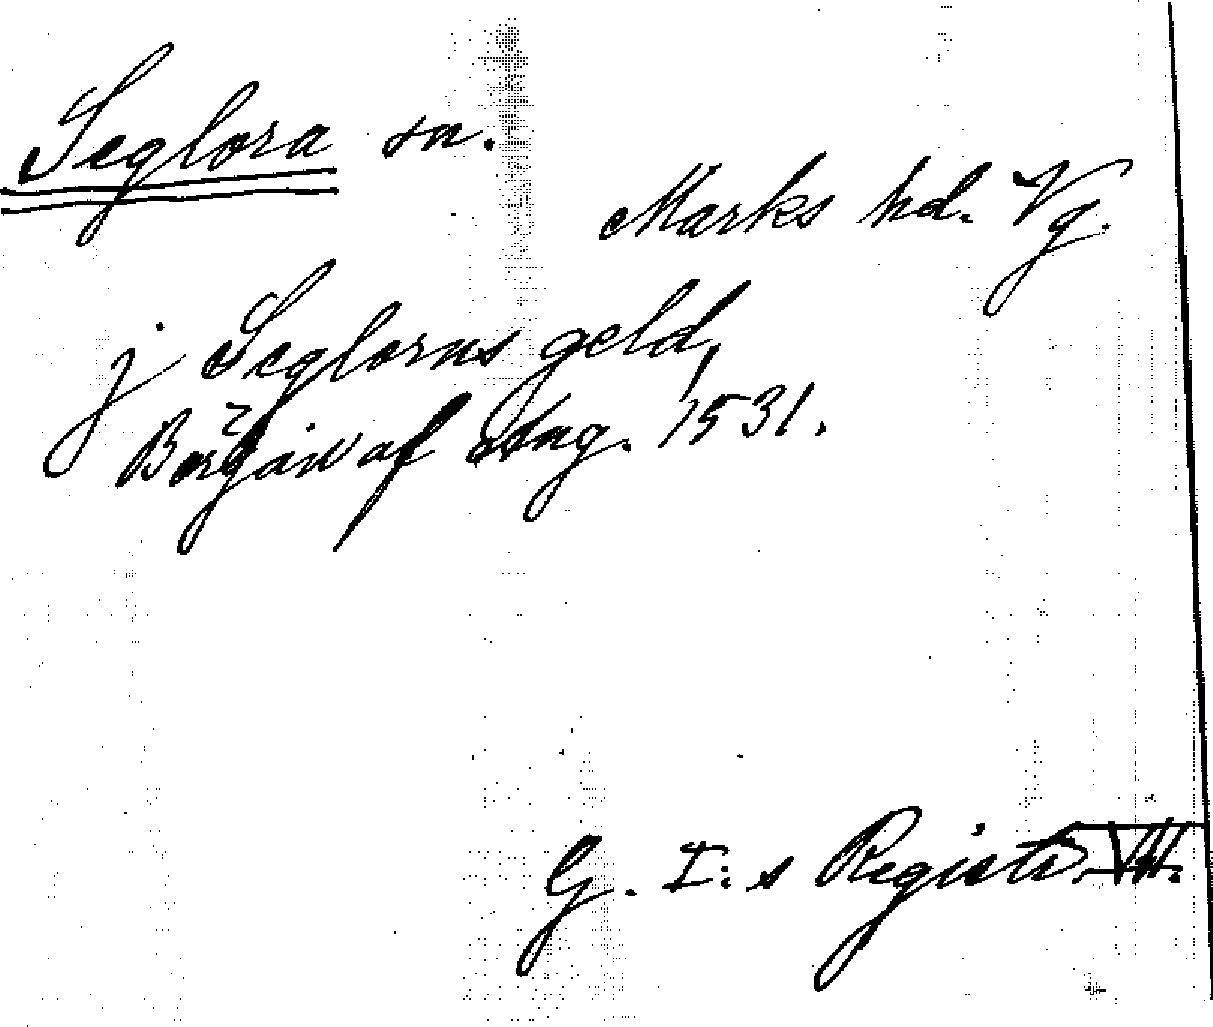 Seglora sn.
Marks hd. Vg.
j Seglorus geld,
af Aug. 1531.
G. I:s Registr. VII.